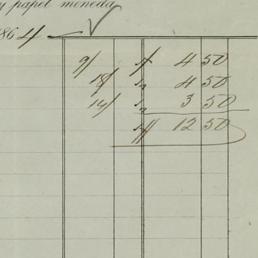 y papel moneda
1864
9/ 4 50
18/ " 4 50
14/ " 3 50
12 50